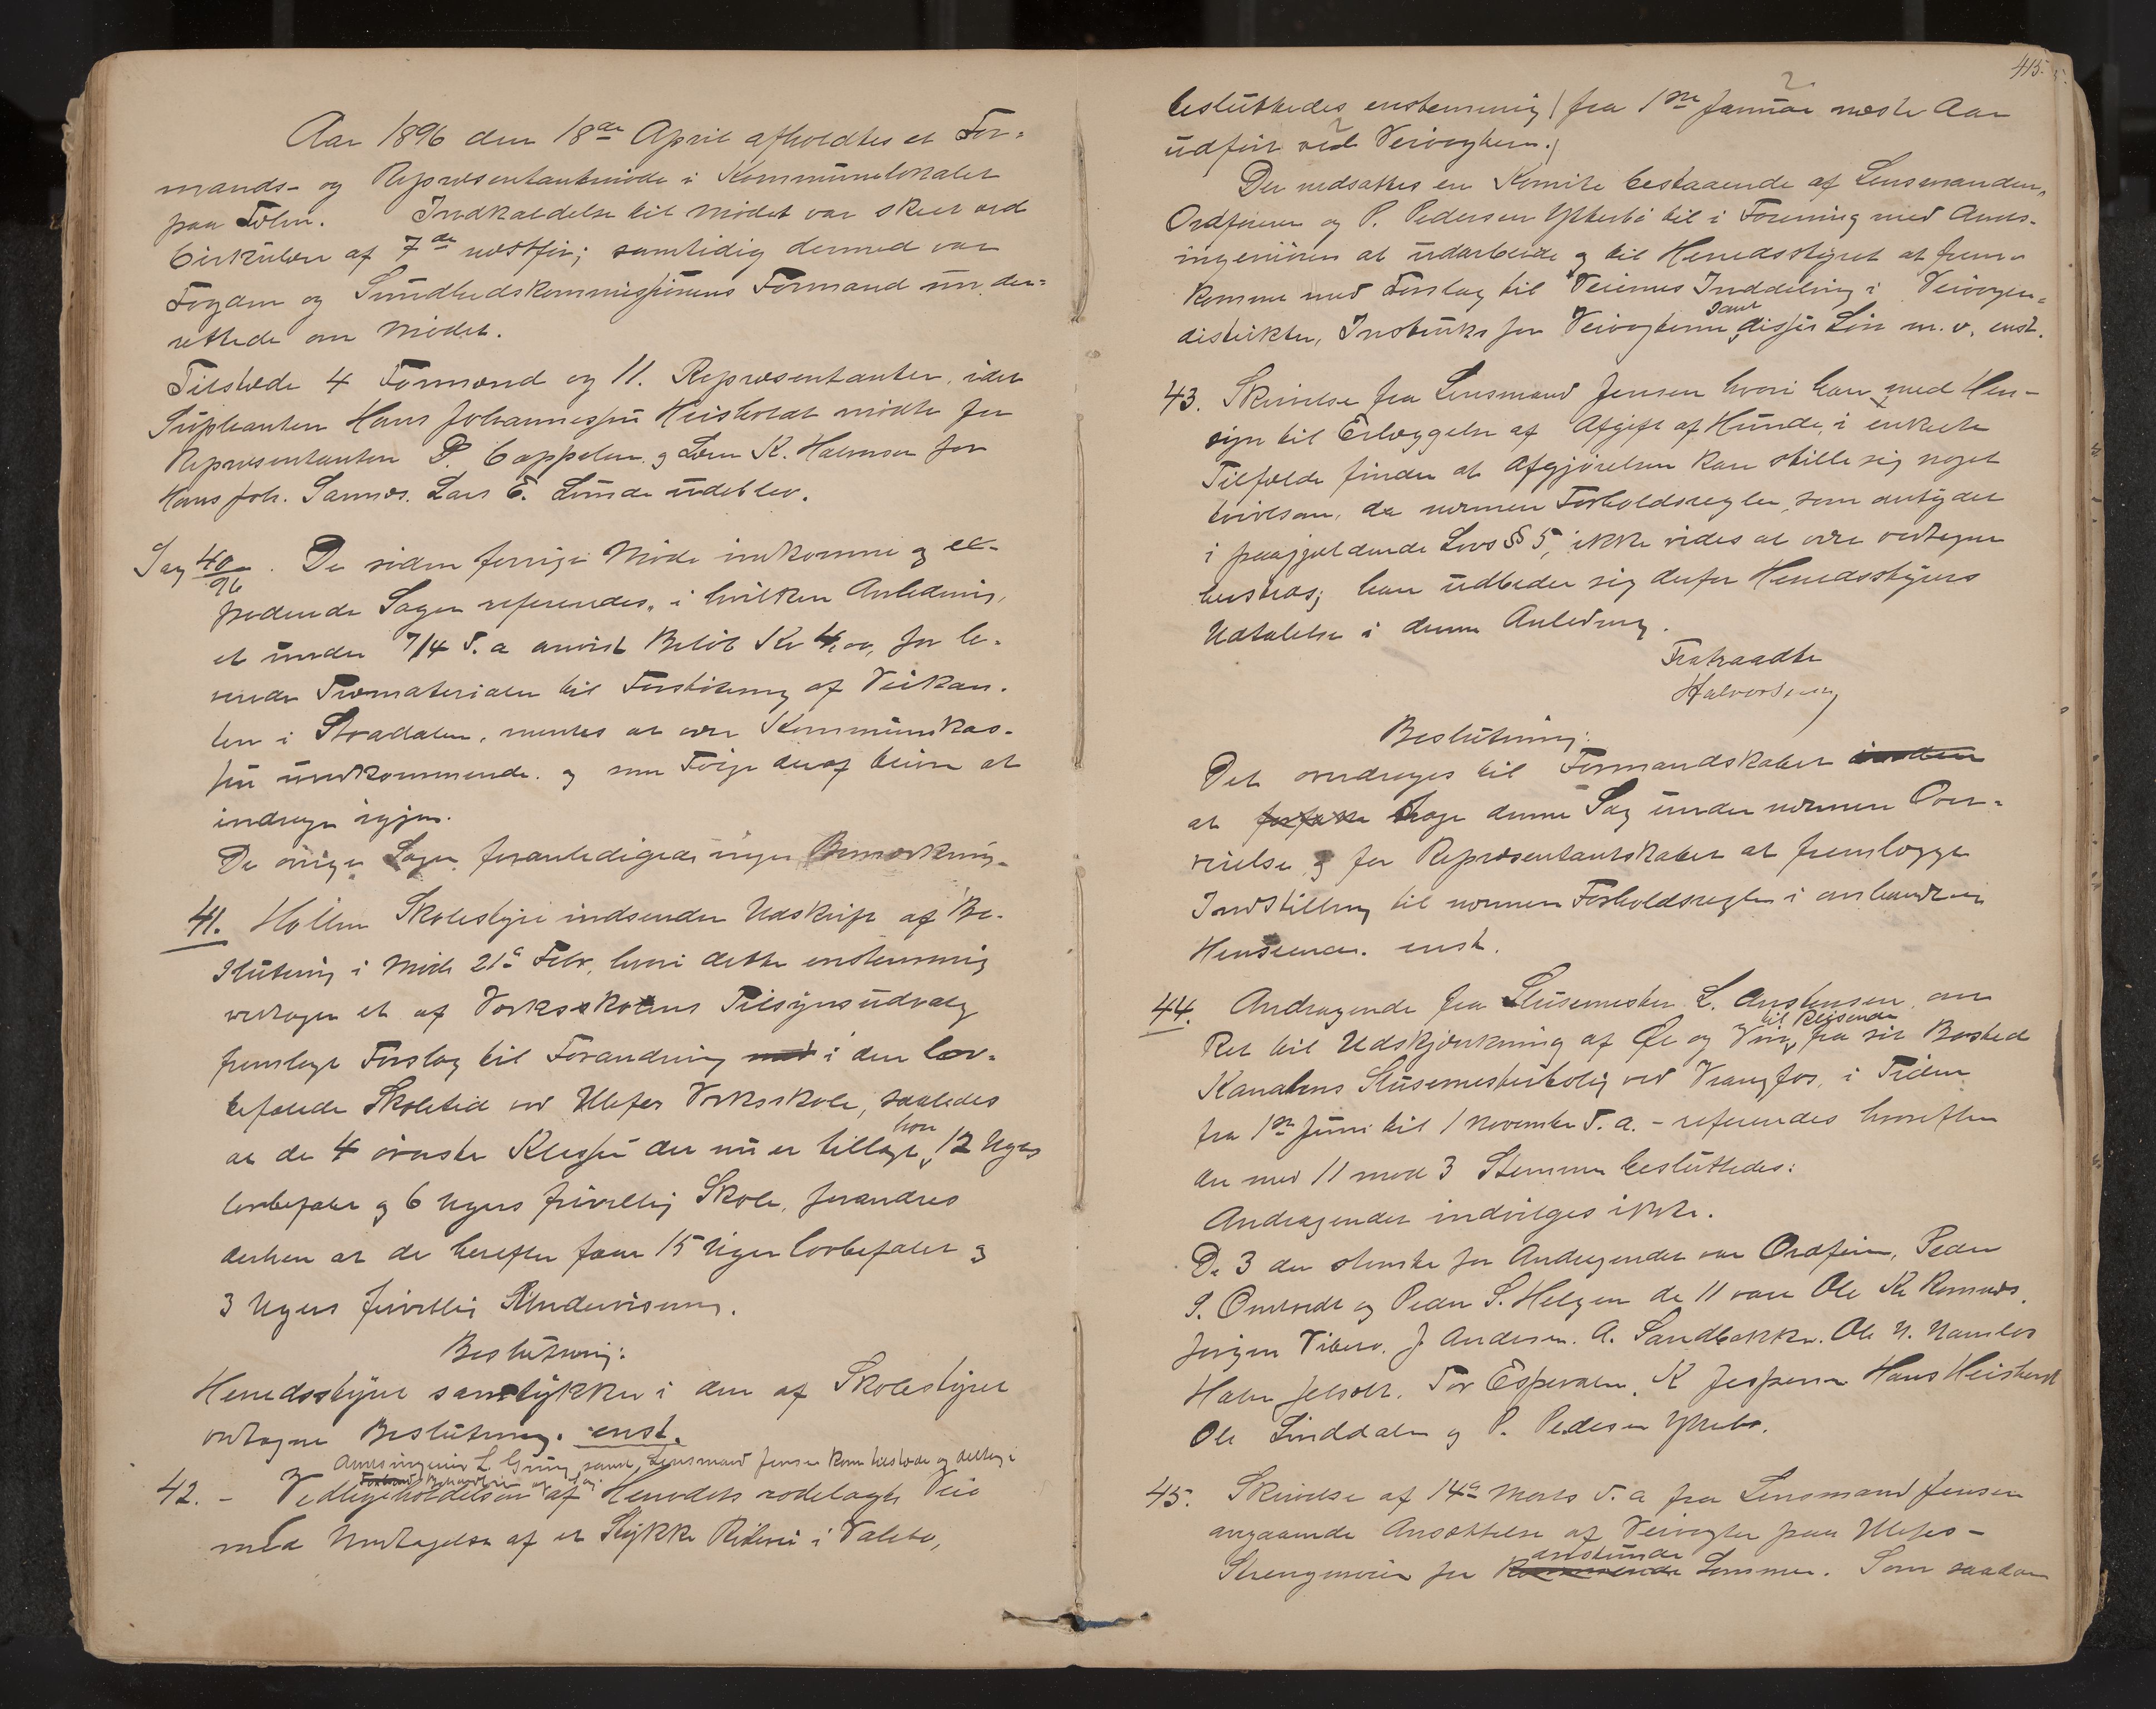 Aar 1896 den 18de April afholdtes et For-
mands- og Repræsentantmöde i Kommunelokalet
paa Tolm. Indkaldelse til Mödet var skeet ved
Cirkulære af 7de næstfør; samtidig dermed var
Fogden og Sundhedskommissionens Formand un der-
rettede om Mödet.
Tilstede 4 Formænd og 11. Repræsentanter, idet
Supleanten Hans Johannessen Heisholdt mödte for
Repræsentanten P. Cappelen og K. Halvorsen for
Hans Joh. Sannes. Lars E. Lunde udeblev.
Sag 40/96. De siden forrige Möde indkomne og ex-
pederede Sager refereredes, i hvilken Anledning,
et under 7/4 d. a anvist Belöb Kr 4,00, for le-
verede Træmaterialer til Forstötning af Veikan-
ten i Stradalen, mentes at være Kommunekas-
sen uvedkommende og som Fölge deraf bliver at
inddrage igjen.
De övrige Sager foranledigede ingen Bemærkning.
41. Hollen Skolestyre indsender Udskrift af Be-
slutning i Möde 21de Febr, hvori dette enstemmig
vedtager et af Værksskolens Tilsynsudvalg
fremlagt Forslag til Forandring i den lov-
befalede Skoletid ved Ulefos Værksskole, saaledes
at de 4 överste Klasser der nu er tillagt hver 12 Ugers
lovbefalet og 6 Ugers frivillig Skole, forandres
derhen at de herefter faar 15 Uger lovbefalet og
3 Ugers frivillig Undervisning.
Beslutning:
Heredsstyret samtykker i den af Skolestyret
vedtagne Beslutning. enst.
Amtsingeniör L Gring samt Lensmand Jensen kom tilstede og deltog i
Behandlingen af Sag.
42. - Vedligeholdelsen af Heredets rodelagte Veie
med Undtagelse af et Stykke Rideveie i Valebö,
415.
besluttedes enstemmig (fra 1ste Januar næste Aar
udfört ved Veivogtere.)
Der nedsattes en Komite bestaaende af Lensmanden,
Ordföreren og P. Pedersen Ytterbö til i Forening med Amts-
ingeniören at udarbeide og til Heredsstyret at frem-
komme med Forslag til Veienes Inddeling i Veivogter-
distrikter, Instruks for Veivogterne samt disses Lön m. v. enst.
43. Skrivelse fra Lensmand Jensen hvori han med Hen-
syn til Erlæggelse af Afgift af Hunde, i enkelte
Tilfælde finder at Afgjörelsen kan stille sig noget
tvivlsom, da nærmere Forholdsregler, som antydet
i paagjældende Lovs § 5, ikke vides at være vedtagne
herstads; han udbeder sig derfor Heredsstyrets
Udtalelse i denne Anledning.
Fratraadte
Halvorsen
Beslutning:
Det overdrages til Formandskabet
at tage denne Sag under nærmere Over-
veielse og for Repræsentantskabet at fremlægge
Indstilling til nærmere Forholdsregler i omhandlede
Henseende. enst.
44. Andragende fra Slusemester L. Austensen om
Ret til Udskjænkning af Öl og Vin til Reisende fra sit Bosted
Kanalens Slusemesterbolig ved Vrangfos, i Tiden
fra 1ste Juni til 1 November d. a. - refereredes hvorefter
der med 11 mod 3 Stemmer besluttedes:
Andragendet indvilges ikke.
De 3 der stemte for Andragendet var Ordförer, Peder
S. Omtvedt og Peder S. Helgen de 11 vare Ole K. Romnæs,
Jörgen Vibeto, J. Andersen. A. Sandbakke. Ole N. Namlös
Halvor Jelsolt. Tor Espevalen. K Jespersen Hans Heisholdt
Ole Linddalen og P. Pedersen Ytterbö.
45. Skrivelse af 14de Marts d. a fra Lensmand Jensen
angaaende Ansættelse af Veivogter paa Ulefos-
Strengenveien for anstundende Sommer. Som saadan